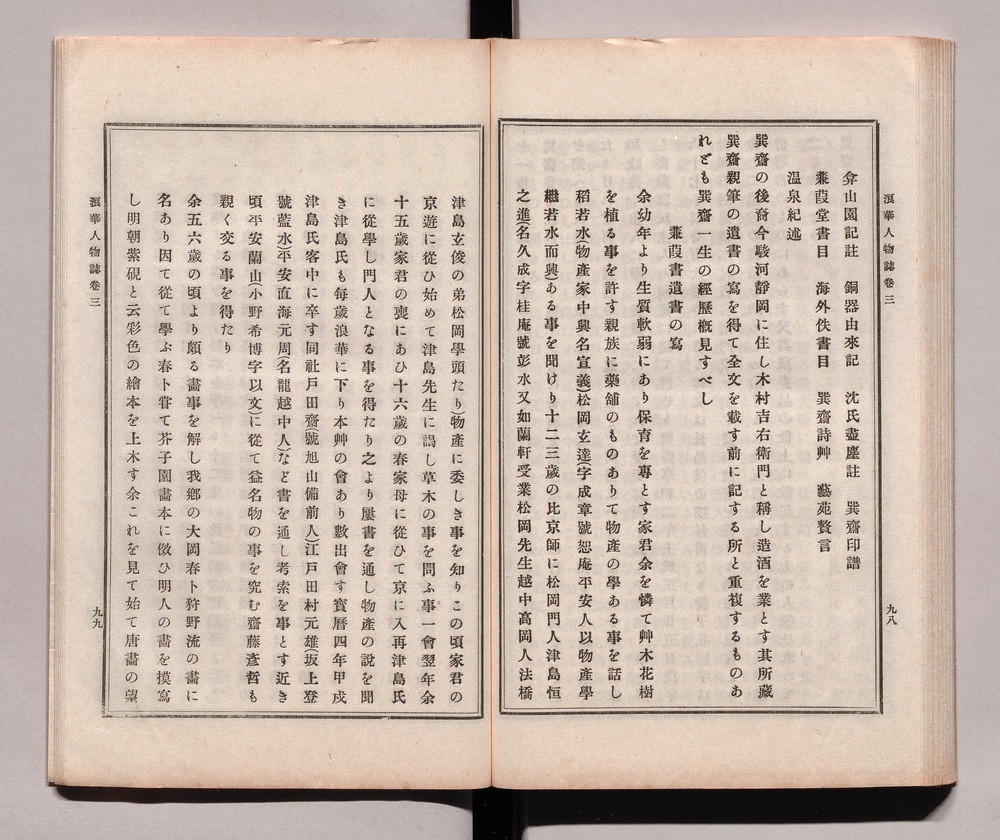 浪華人物誌卷三
九八
弇山園記註　銅器由來記　沈氏盡塵註　巽齋印譜
蒹葭堂書目　海外佚書目　巽齋詩艸　藝苑贅言
溫泉紀述
巽齋の後裔今駿河靜岡に住し木村吉右衛門と稱し造酒を業とす其所藏
巽齋親筆の遺書の寫を得て全文を載す前に記する所と重複するものあ
れども巽齋一生の經歷概見すべし
蒹葭書遺書の寫
余幼年より生質軟弱にあり保育を専とす家君余を憐て艸木花樹
を植る事を許す親族に藥舖のものありて物產の學ある事を話し
稻若水(物產家中興名宣義)松岡玄達(字成章號恕庵平安人以物產學
繼若水而興)ある事を聞けり十二三歲の比京師に松岡門人津島恒
之進(名久成字桂庵號彭水又如蘭軒受業松岡先生越中高岡人法橋
津島玄俊の弟松岡學頭たり)物產に委しき事を知りこの頃家君の
京遊に從ひ始めて津島先生に謁し草木の事を問ふ事一會翌年余
十五歲家君の喪にあひ十六歲の春家母に從ひて京に入再津島氏
に從學し門人となる事を得たり之より屢書を通し物產の說を聞
き津島氏も每歲浪華に下り本艸の會あり數出會す寶曆四年甲戍
津島氏客中に卒す同社戶田齋號旭山備前人)江戶田村元雄(坂上登
號藍水)平安直海元周(名龍越中人)など書を通し考索を事とす近き
頃平安蘭山(小野希博字以文)に從て益名物の事を究む齋藤彥哲も
親く交る事を得たり
余五六歲の頃より頗る畵事を解し我鄕の大岡春卜狩野流の畵に
名あり因て從て學ふ春卜甞て芥子園畵本に傚ひ明人の畵を摸寫
し明朝紫硯と云彩色の繪本を上木す余これを見て始て唐畵の望
浪華人物誌卷三
九九